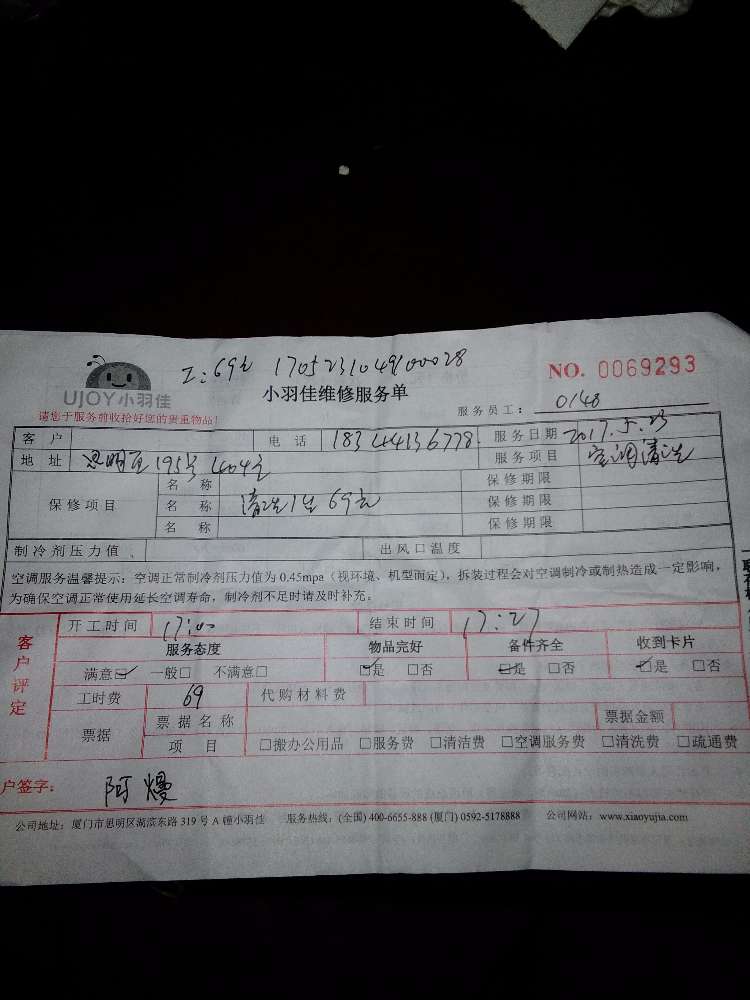 工:69元 1705231049100028
UJOY小羽佳
小羽佳维修服务单
NO. 0069293
请您于服务前收拾好您的贵重物品!
服务员工: 0148
客户 电话 18344136778 服务日期 2017.5.23
地址 思明区195号404室 服务项目 空调清洗
保修项目 名称 保修期限
名称 清洗1台 69元 保修期限
名称 保修期限
制冷剂压力值、 出风口温度
空调服务温馨提示:空调正常制冷剂压力值为0.45mpa(视环境、机型而定),拆装过程会对空调制冷或制热造成一定影响,
为确保空调正常使用延长空调寿命,制冷剂不足时请及时补充。
客户评定
开工时间 17:00 结束时间 17:27
服务态度 物品完好 备件齐全 收到卡片
满意☑ 一般□ 不满意□ ☑是 □否 ☑是 □否 ☑是 □否
工时费 69 代购材料费
票据 票据名称 票据金额
项目 □搬办公用品 □服务费 □清洁费 □空调服务费 □清洗费 □疏通费
户签字: 阿熳
公司地址:厦门市思明区湖滨东路319号A幢小羽佳 服务热线:(全国)400-6655-888 (厦门)0592-5178888 公司网站:www.xiaoyujia.com